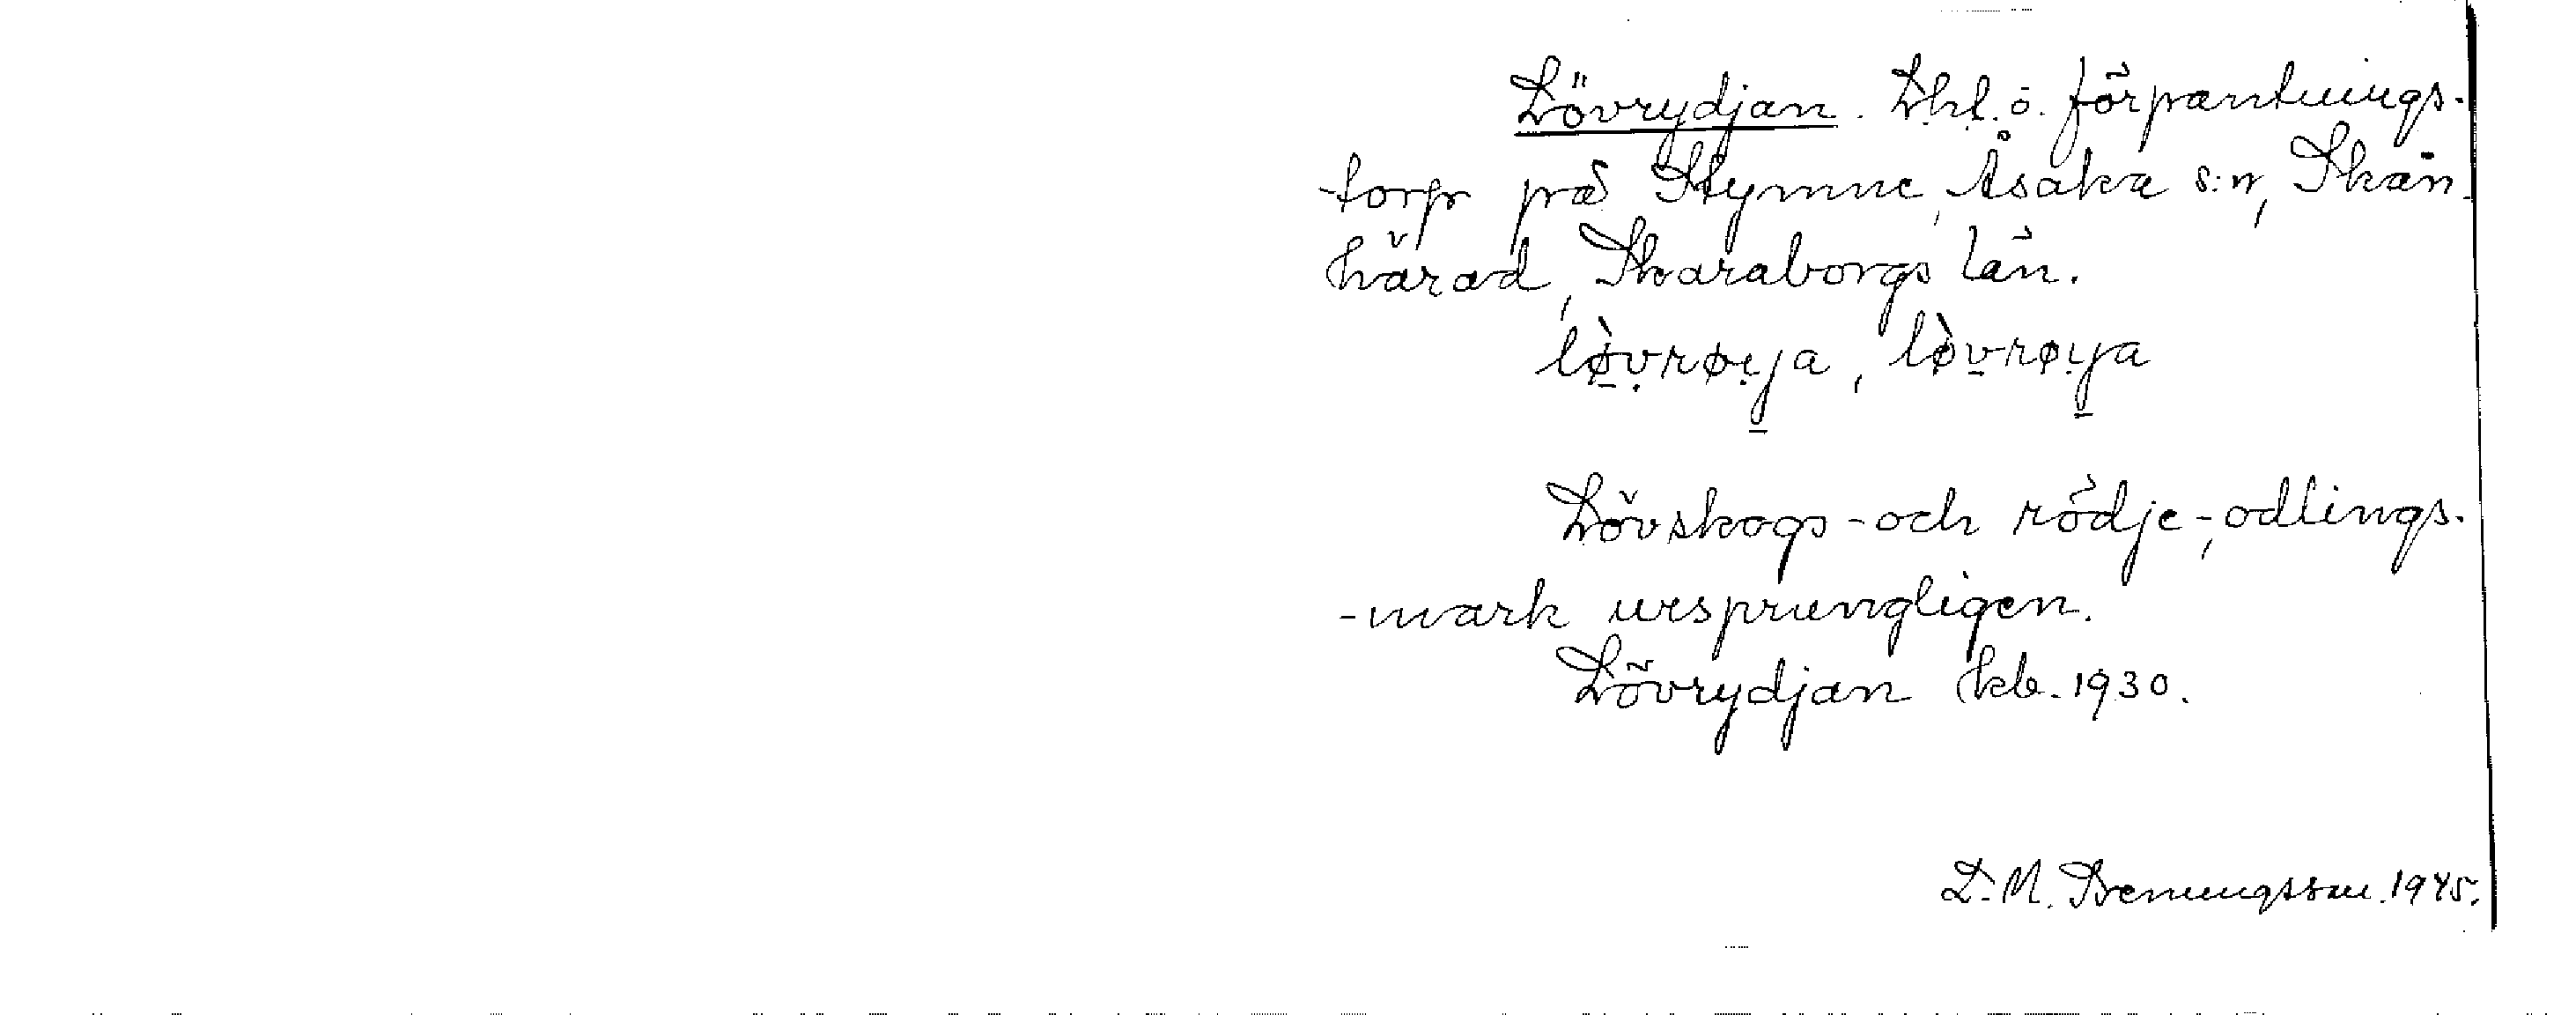 Lövrydjan. Lht. ö. förpantnings-
-torp på Stymne, Åsaka s:n, Skån.
härad, Skaraborgs län.
lø̀vrøya, lø̀vrøya
Lövskogs- och rödje-, odlings-
-mark ursprungligen.
Lövrydjan kb. 1930.
D. M. Benningsson. 1945.